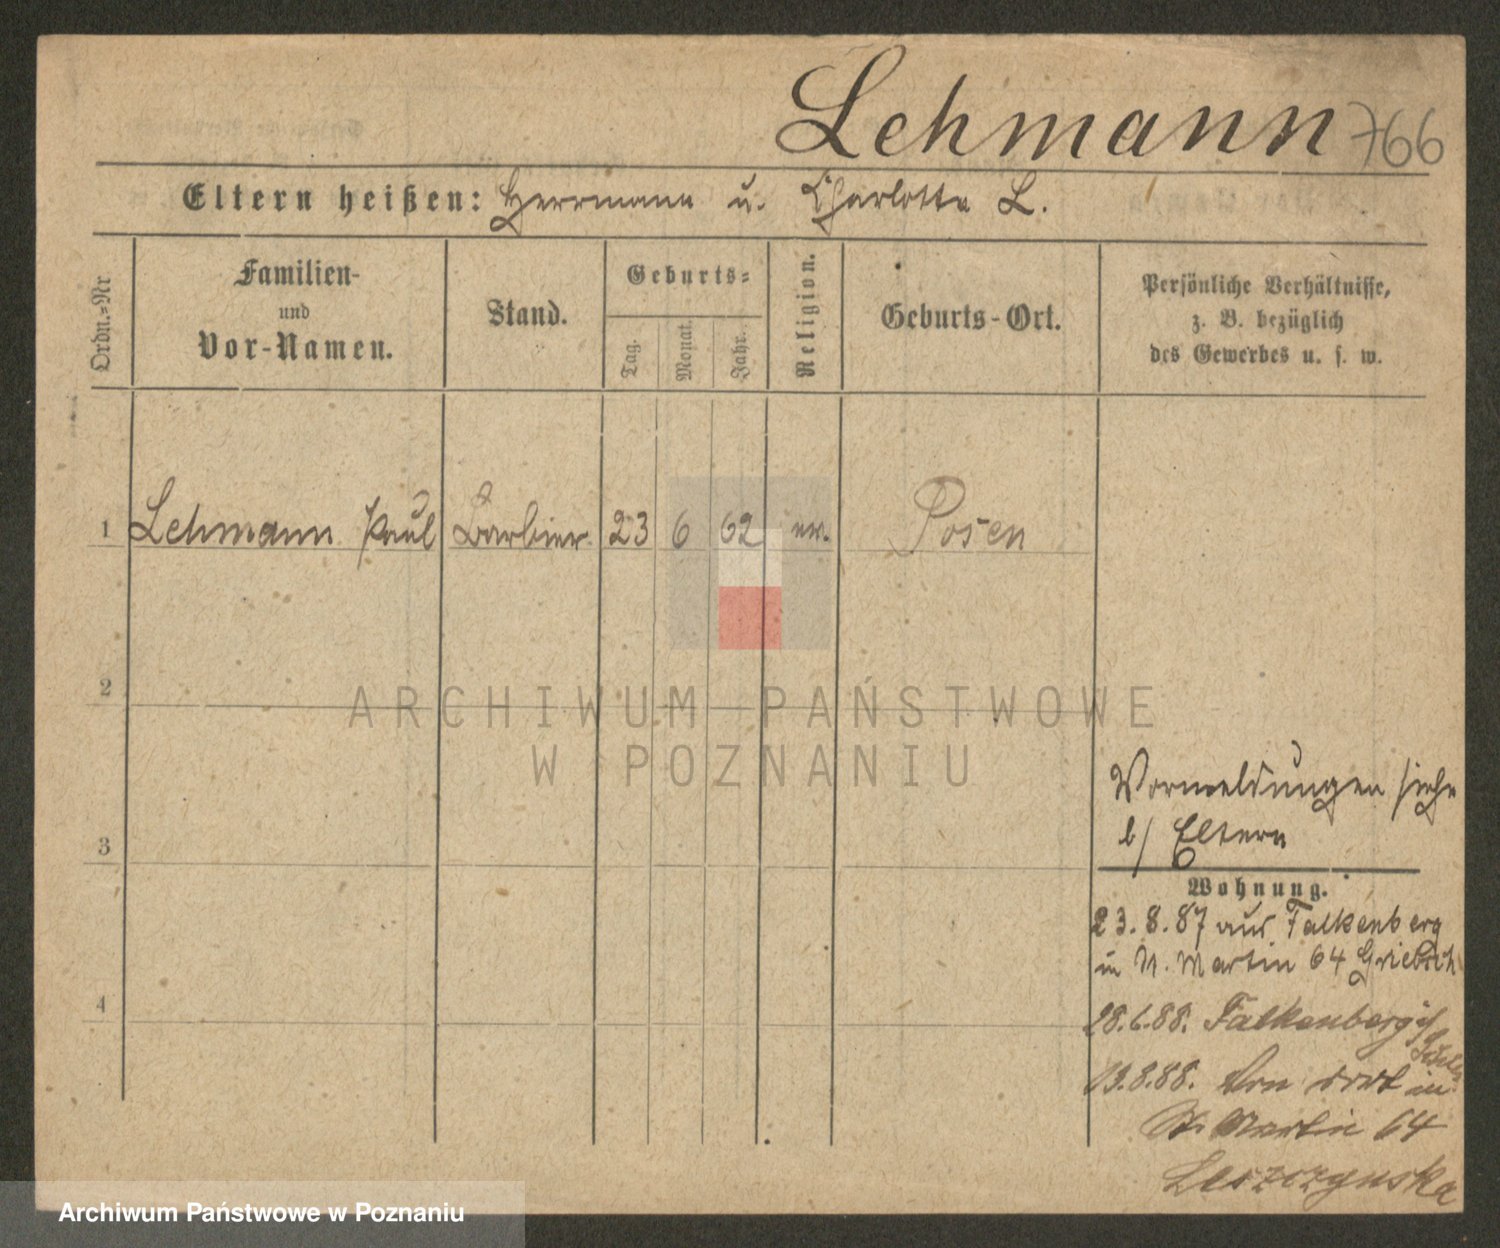 Lehmann 766
Eltern heißen: Herrmann u. Charlotte L.
Ordn.=Nr
Familien-
und
Vor-Namen.
Stand.
Geburts=
Tag.
Monat.
Jahr.
Religion.
Geburts-Ort.
Persönliche Verhältnisse,
z. B. bezüglich
des Gewerbes u. s. w.
1 Lehmann Paul Barbier 23 6 62 ev. Posen
2
ARCHIWUM PAŃSTWOWE
W POZNANIU
Vormeldungen siehe
b/ Eltern
3
Wohnung.
23.8.87 aus Falkenberg
in St. Martin 64 Griebsch
4
28.6.88. Falkenberg
19.8.88. Von dort in
St. Martin 64
Leszczynska
Archiwum Państwowe w Poznaniu